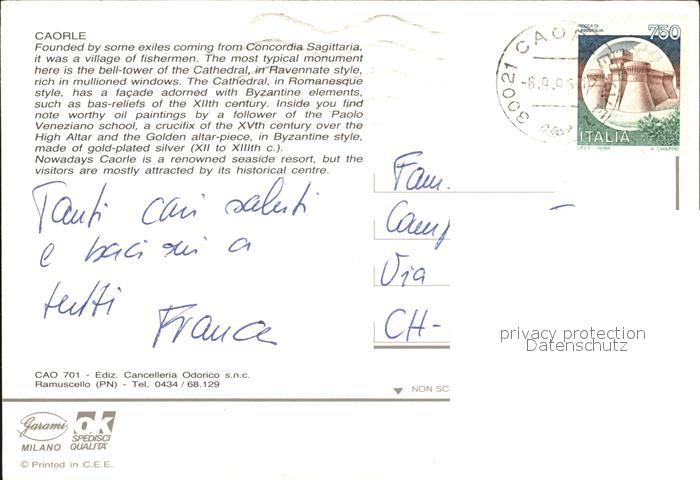 CAORLE
Founded by some exiles coming from Concordia Sagittaria,
it was a village of fishermen. The most typical monument
here is the bell-tower of the Cathedral, in Ravennate style,
rich in mullioned windows. The Cathedral, in Romanesque
style, has a façade adorned with Byzantine elements,
such as bas-reliefs of the XIIth century. Inside you find
note worthy oil paintings by a follower of the Paolo
Veneziano school, a crucifix of the XVth century over the
High Altar and the Golden altar-piece, in Byzantine style,
made of gold-plated silver (XII to XIIIth c.).
Nowadays Caorle is a renowned seaside resort, but the
visitors are mostly attracted by its historical centre.
Tanti cari saluti
e bacioni a
tutti
Franca
CAO 701 - Ediz. Cancelleria Odorico s.n.c.
Ramuscello (PN) - Tel. 0434 / 68.129
Garami
MILANO
OK
SPEDISCI
QUALITÀ
© Printed in C.E.E.
30021 CAO
-6.9.96
ROCCA DI
750
ITALIA
I.P.Z.S. - ROMA
Fam.
Camp
Via
CH-
NON SC
privacy protection
Datenschutz